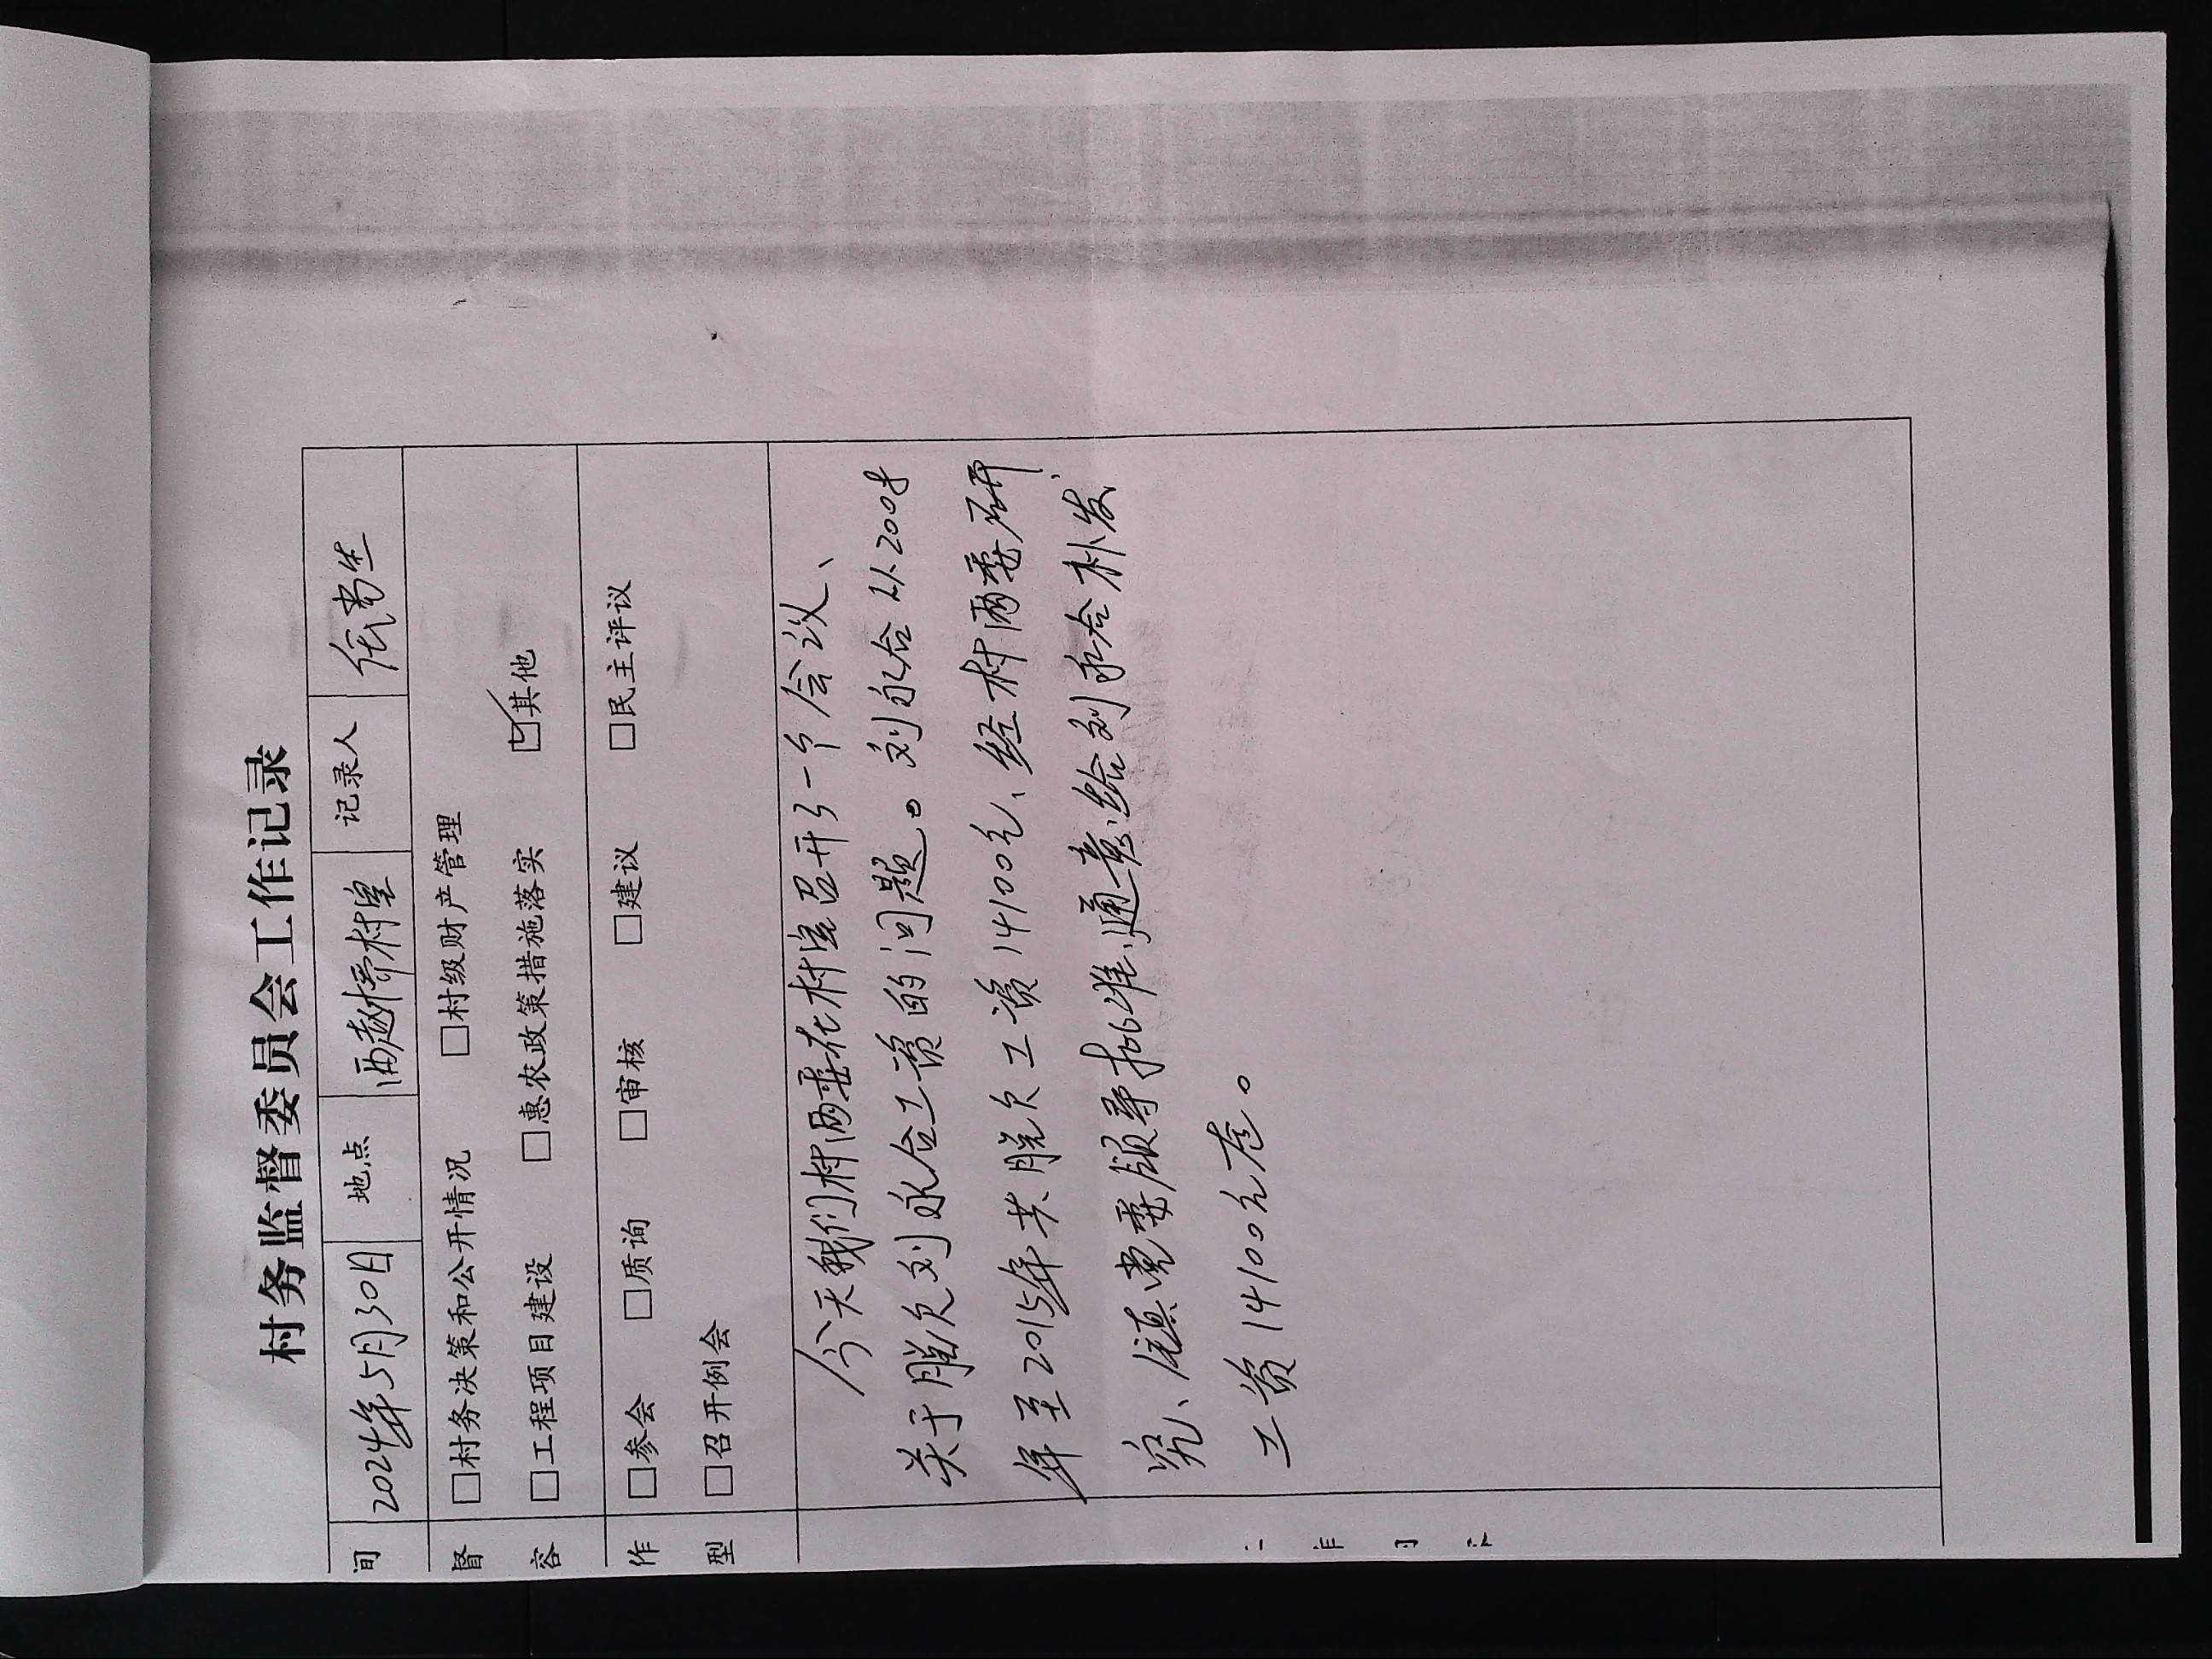 村务监督委员会工作记录
间 2024年5月30日 地点 西赵桥村室 记录人
督 □村务决策和公开情况 □村级财产管理
容 □工程项目建设 □惠农政策措施落实 ☑其他
作 □参会 □质询 □审核 □建议 □民主评议
型 □召开例会
今天我们村两委在村室召开了一个会议、
关于脱欠刘永合工资的问题。刘永合从2008
年至2015年共脱欠工资14100元、经村两委研
究、镇党委领导批准,通意给刘永合补发
工资14100元走。